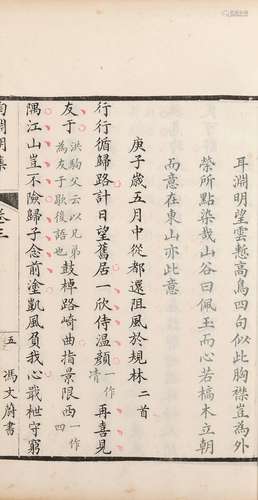 耳淵明望雲慙高鳥四句似此胸襟豈為外
榮所點染哉山谷曰佩玉而心若槁木立朝
而意在東山亦此意
庚子歲五月中從都還阻風於規林二首
行行循歸路計日望舊居一欣侍溫顏一作清再喜見
友于洪駒父云以兄弟為友于歇後語也鼓棹路崎曲指景限西一作四
隅江山豈不險歸子念前塗凱風負我心戢枻守窮
陶淵明集
卷三
五
馮文蔚書